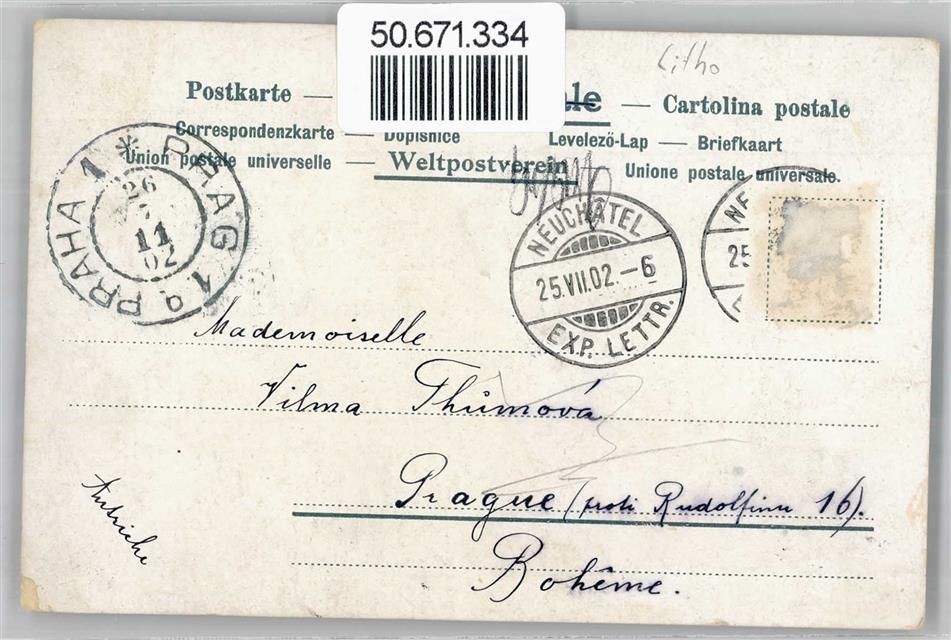 50.671.334
Litho
Postkarte — le — Cartolina postale
Correspondenzkarte — Dopisnice Levelező-Lap — Briefkaart
Union postale universelle — Weltpostverein Unione postale universale.
PRAHA 1 * PRAG 1
26
11
02
NEUCHATEL
25.VII.02.–6
EXP. LETTR.
NE
25
Mademoiselle
Vilma Thümová
Prague (proti Rudolfinu 16).
Bohême.
Autriche